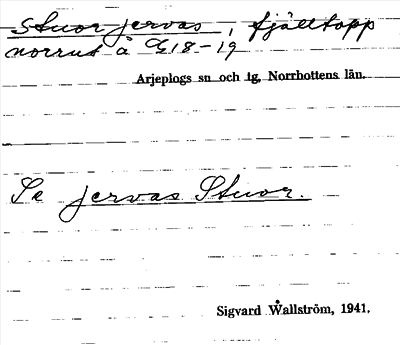 Stuor jervas, fjälltopp
norrut å G18-19
Arjeplogs sn och tg, Norrbottens län.
Se jervas Stuor.
Sigvard Wallström, 1941.